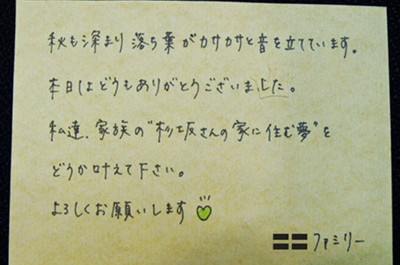 秋も深まり 落ち葉がカサカサと音を立てています。
本日はどうもありがとうございました。
私達、家族の"杉坂さんの家に住む夢"を
どうか叶えて下さい。
よろしくお願いします
ファミリー